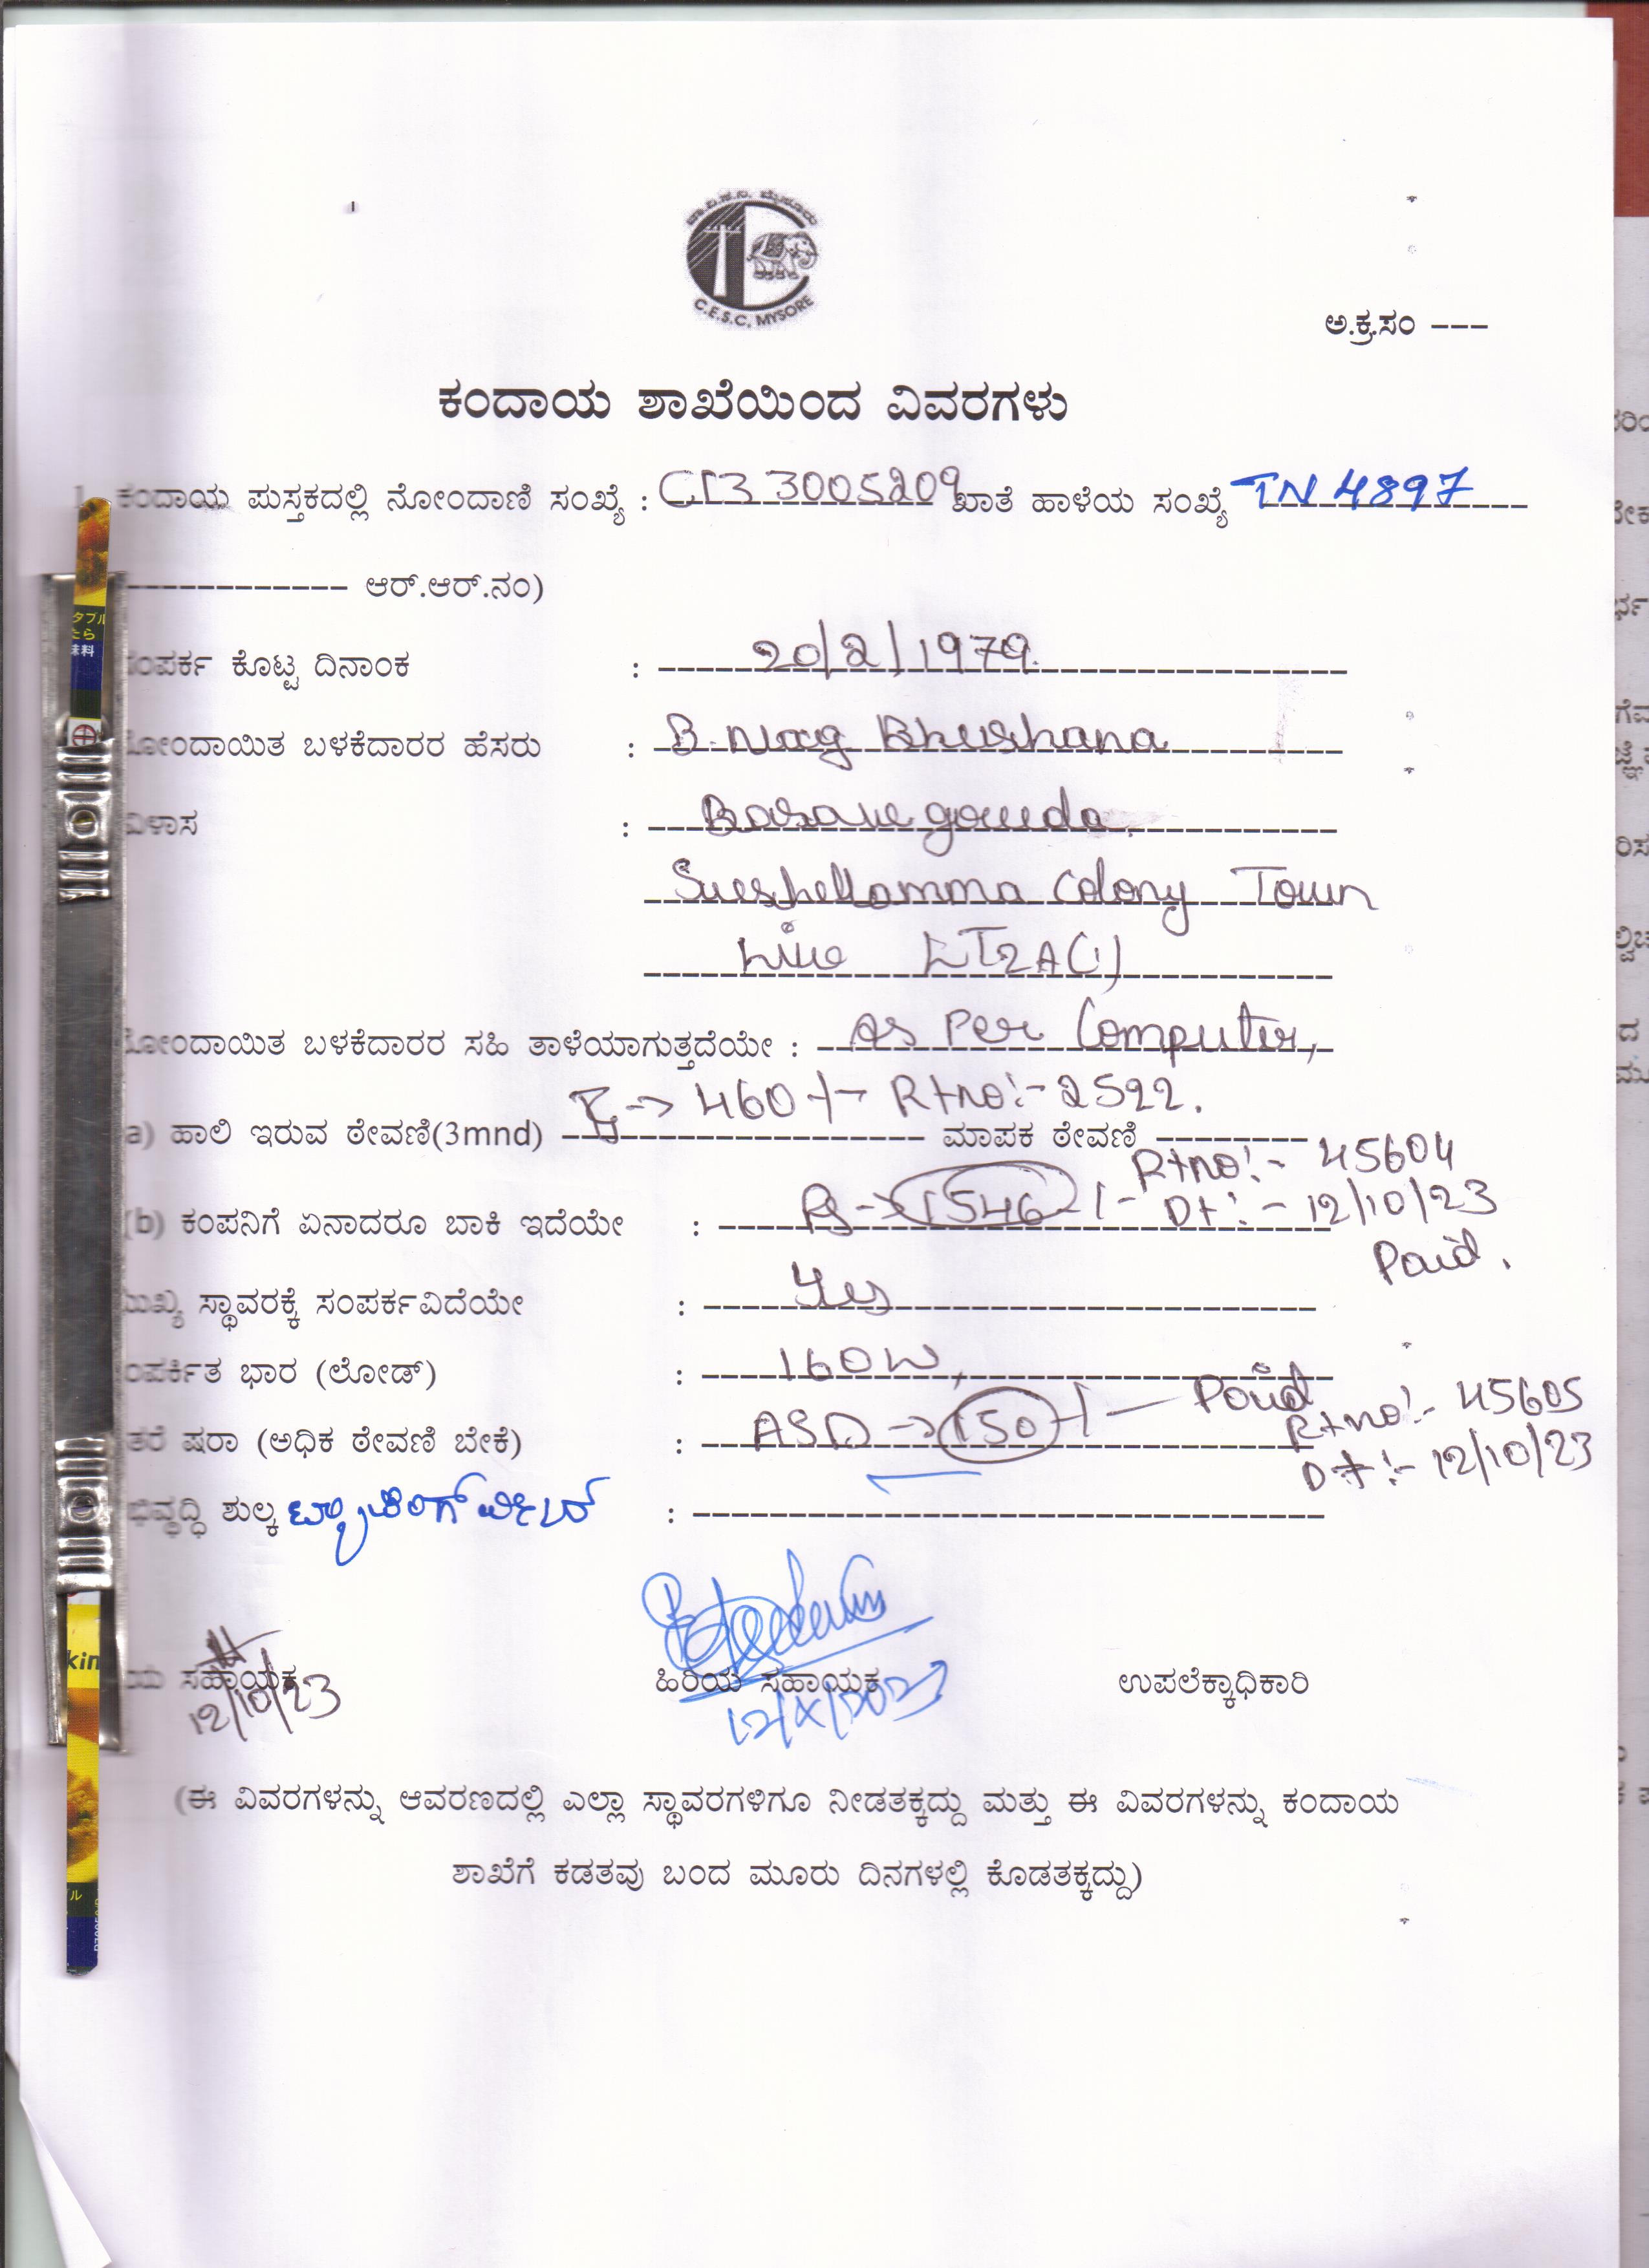 ಚಾ.ವಿ.ಸ.ನಿ. ಮೈಸೂರು
C.E.S.C. MYSORE
ಅ.ಕ್ರ.ಸಂ ---
ಕಂದಾಯ ಶಾಖೆಯಿಂದ ವಿವರಗಳು
1. ಕಂದಾಯ ಪುಸ್ತಕದಲ್ಲಿ ನೋಂದಾಣಿ ಸಂಖ್ಯೆ : 3005209 ಖಾತೆ ಹಾಳೆಯ ಸಂಖ್ಯೆ TN 4897
------------- ಆರ್.ಆರ್.ನಂ)
ಸಂಪರ್ಕ ಕೊಟ್ಟ ದಿನಾಂಕ : 20/2/1979.
ನೋಂದಾಯಿತ ಬಳಕೆದಾರರ ಹೆಸರು : B. Nag Bhushana
ವಿಳಾಸ : Basavegowda.
Colony Town
LT2A(1)
ನೋಂದಾಯಿತ ಬಳಕೆದಾರರ ಸಹಿ ತಾಳೆಯಾಗುತ್ತದೆಯೇ : As Per Computer,
460/- Rtno:- 2522.
a) ಹಾಲಿ ಇರುವ ಠೇವಣಿ(3mnd) ---------- ಮಾಪಕ ಠೇವಣಿ --------
Rtno:- 45604
(b) ಕಂಪನಿಗೆ ಏನಾದರೂ ಬಾಕಿ ಇದೆಯೇ : Rs -> 1546/- Dt:- 12/10/23
Paid.
ಮುಖ್ಯ ಸ್ಥಾವರಕ್ಕೆ ಸಂಪರ್ಕವಿದೆಯೇ : Yes
ಸಂಪರ್ಕಿತ ಭಾರ (ಲೋಡ್) : 160W,
ಇತರೆ ಷರಾ (ಅಧಿಕ ಠೇವಣಿ ಬೇಕೆ) : ASD -> 150/- — Paid
Rtno:- 45605
Dt:- 12/10/23
ಭಿವೃದ್ಧಿ ಶುಲ್ಕ :
ಯ ಸಹಾಯಕ ಹಿರಿಯ ಸಹಾಯಕ ಉಪಲೆಕ್ಕಾಧಿಕಾರಿ
12/10/23
(ಈ ವಿವರಗಳನ್ನು ಆವರಣದಲ್ಲಿ ಎಲ್ಲಾ ಸ್ಥಾವರಗಳಿಗೂ ನೀಡತಕ್ಕದ್ದು ಮತ್ತು ಈ ವಿವರಗಳನ್ನು ಕಂದಾಯ
ಶಾಖೆಗೆ ಕಡತವು ಬಂದ ಮೂರು ದಿನಗಳಲ್ಲಿ ಕೊಡತಕ್ಕದ್ದು)